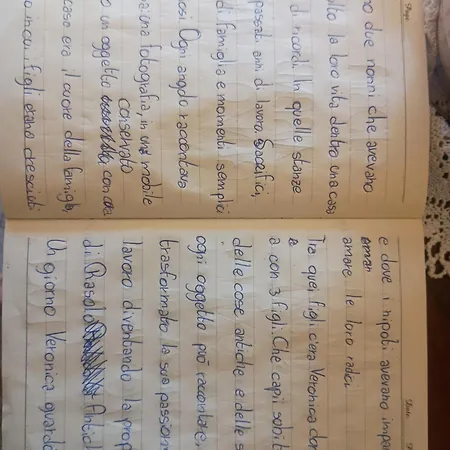 Page
no due nonni che avevano
la loro vita dentro una casa
di ricordi. In quelle stanze
passati anni di lavoro, sacrifici,
di famiglia e momenti semplici
osi. Ogni angolo raccontava
una fotografia, in un mobile
conservato
o un oggetto con cura
casa era il cuore della famiglia,
i figli erano cresciuti
Date
e dove i nipoti avevano
amare le loro radici.
Tra quei figli c'era Veronica
a con 3 figli. Che capì
delle cose antiche e delle
ogni oggetto può raccontare
trasformato la sua passione
lavoro diventando la
di
Un giorno Veronica guardò